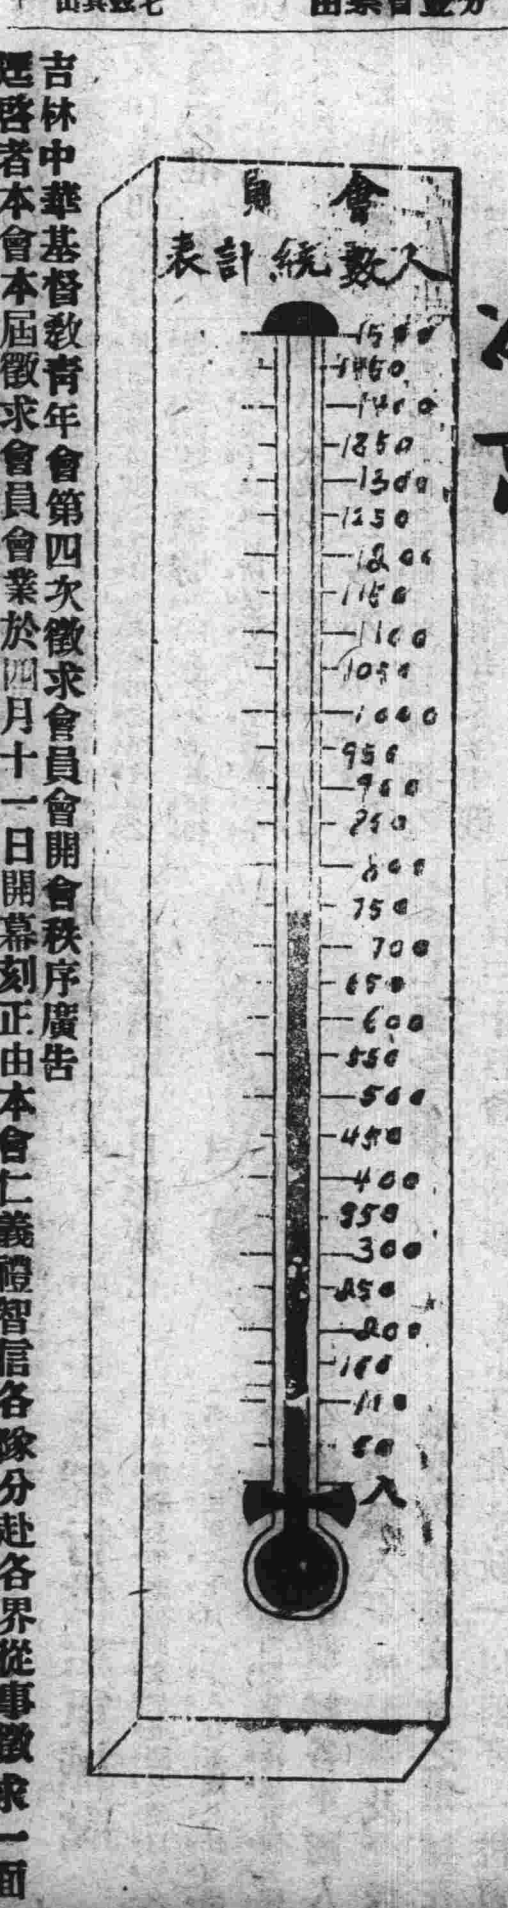 會員
人數統計表
1500
1450
1400
1350
1300
1250
1200
1150
1100
1050
1000
950
900
850
800
750
700
650
600
550
500
450
400
350
300
250
200
150
100
50
人
吉林中華基督教青年會第四次徵求會員會開會秩序廣告
逕啓者本會本屆徵求會員會業於四月十一日開幕刻正由本會仁義禮智信各隊分赴各界從事徵求一面